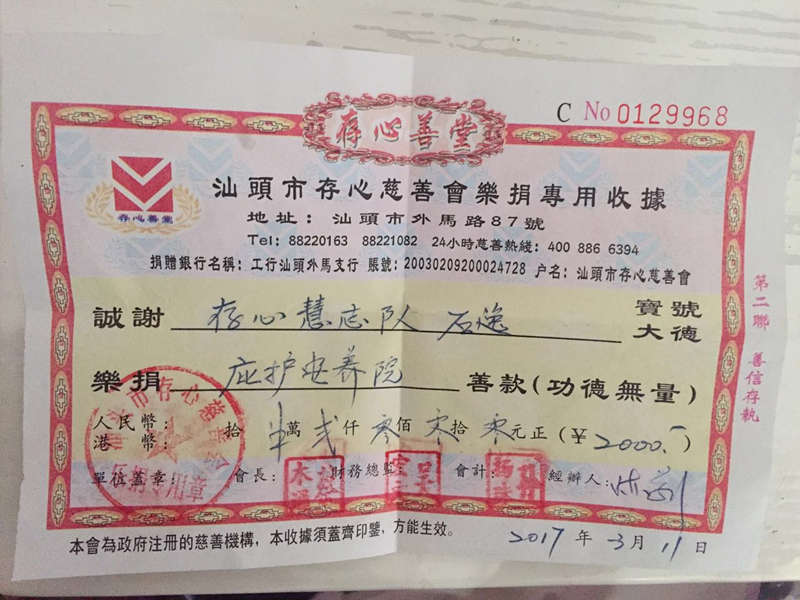 C No 0129968
存心善堂
存心善堂
汕頭市存心慈善會樂捐專用收據
地址：汕頭市外馬路87號
Tel：88220163 88221082 24小時慈善熱綫：400 886 6394
捐贈銀行名稱：工行汕頭外馬支行 賬號：20030209200024728 户名：汕頭市存心慈善會
誠謝 存心慧志队 石逸 寶號 大德
樂捐 庇护安养院 善款（功德無量）
人民幣：
港幣： 拾 萬 弍仟 零佰 零拾 零元正（￥2000.-）
單位蓋章： 會長： 財務總監： 會計： 經辦人：
本會為政府注册的慈善機構，本收據須蓋齊印鑒，方能生效。
2017年3月11日
第二聯 善信存執